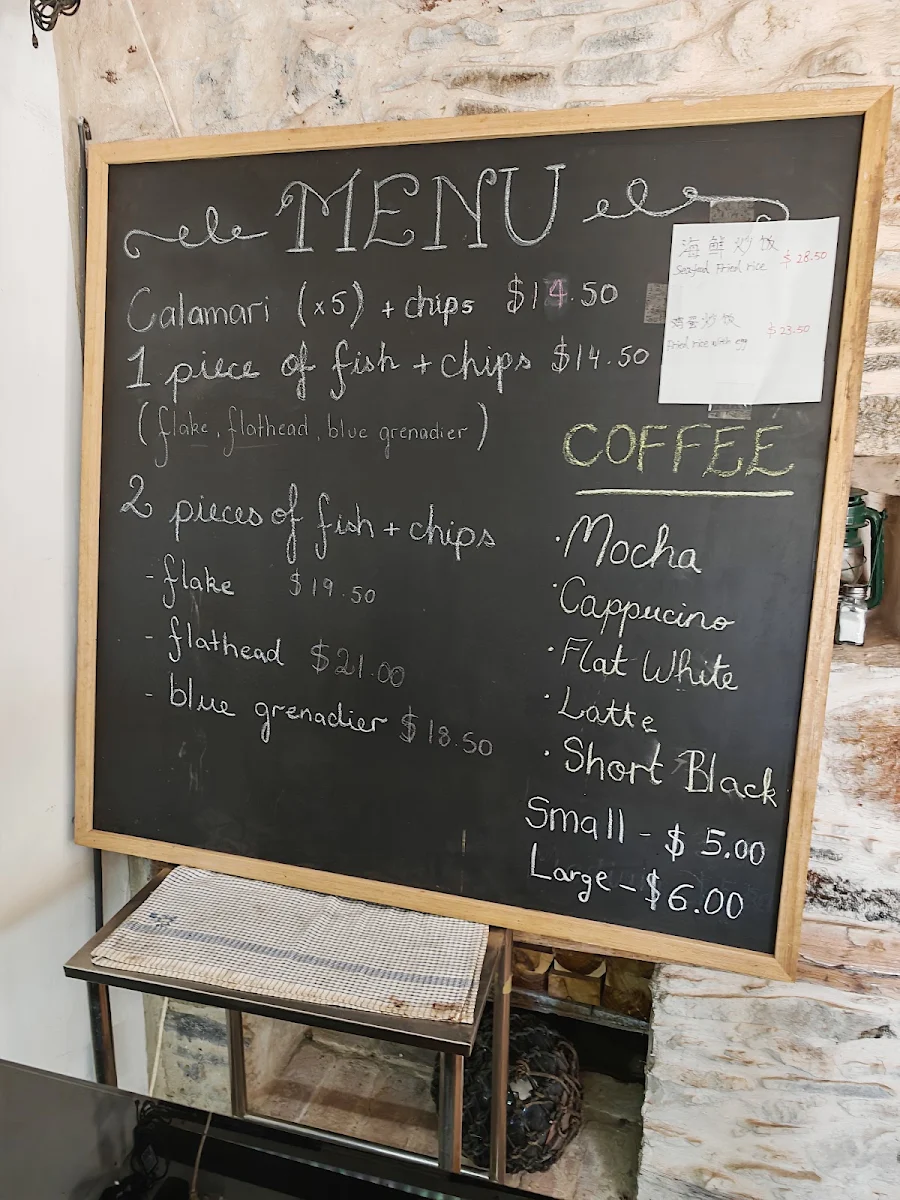 MENU
Calamari (x5) + chips $14.50
1 piece of fish + chips $14.50
(flake, flathead, blue grenadier)
2 pieces of fish + chips
- flake $19.50
- flathead $21.00
- blue grenadier $18.50
海鲜炒饭
Seafood Fried rice $28.50
鸡蛋炒饭
Fried rice with egg $23.50
COFFEE
· Mocha
· Cappucino
· Flat White
· Latte
· Short Black
Small - $5.00
Large - $6.00